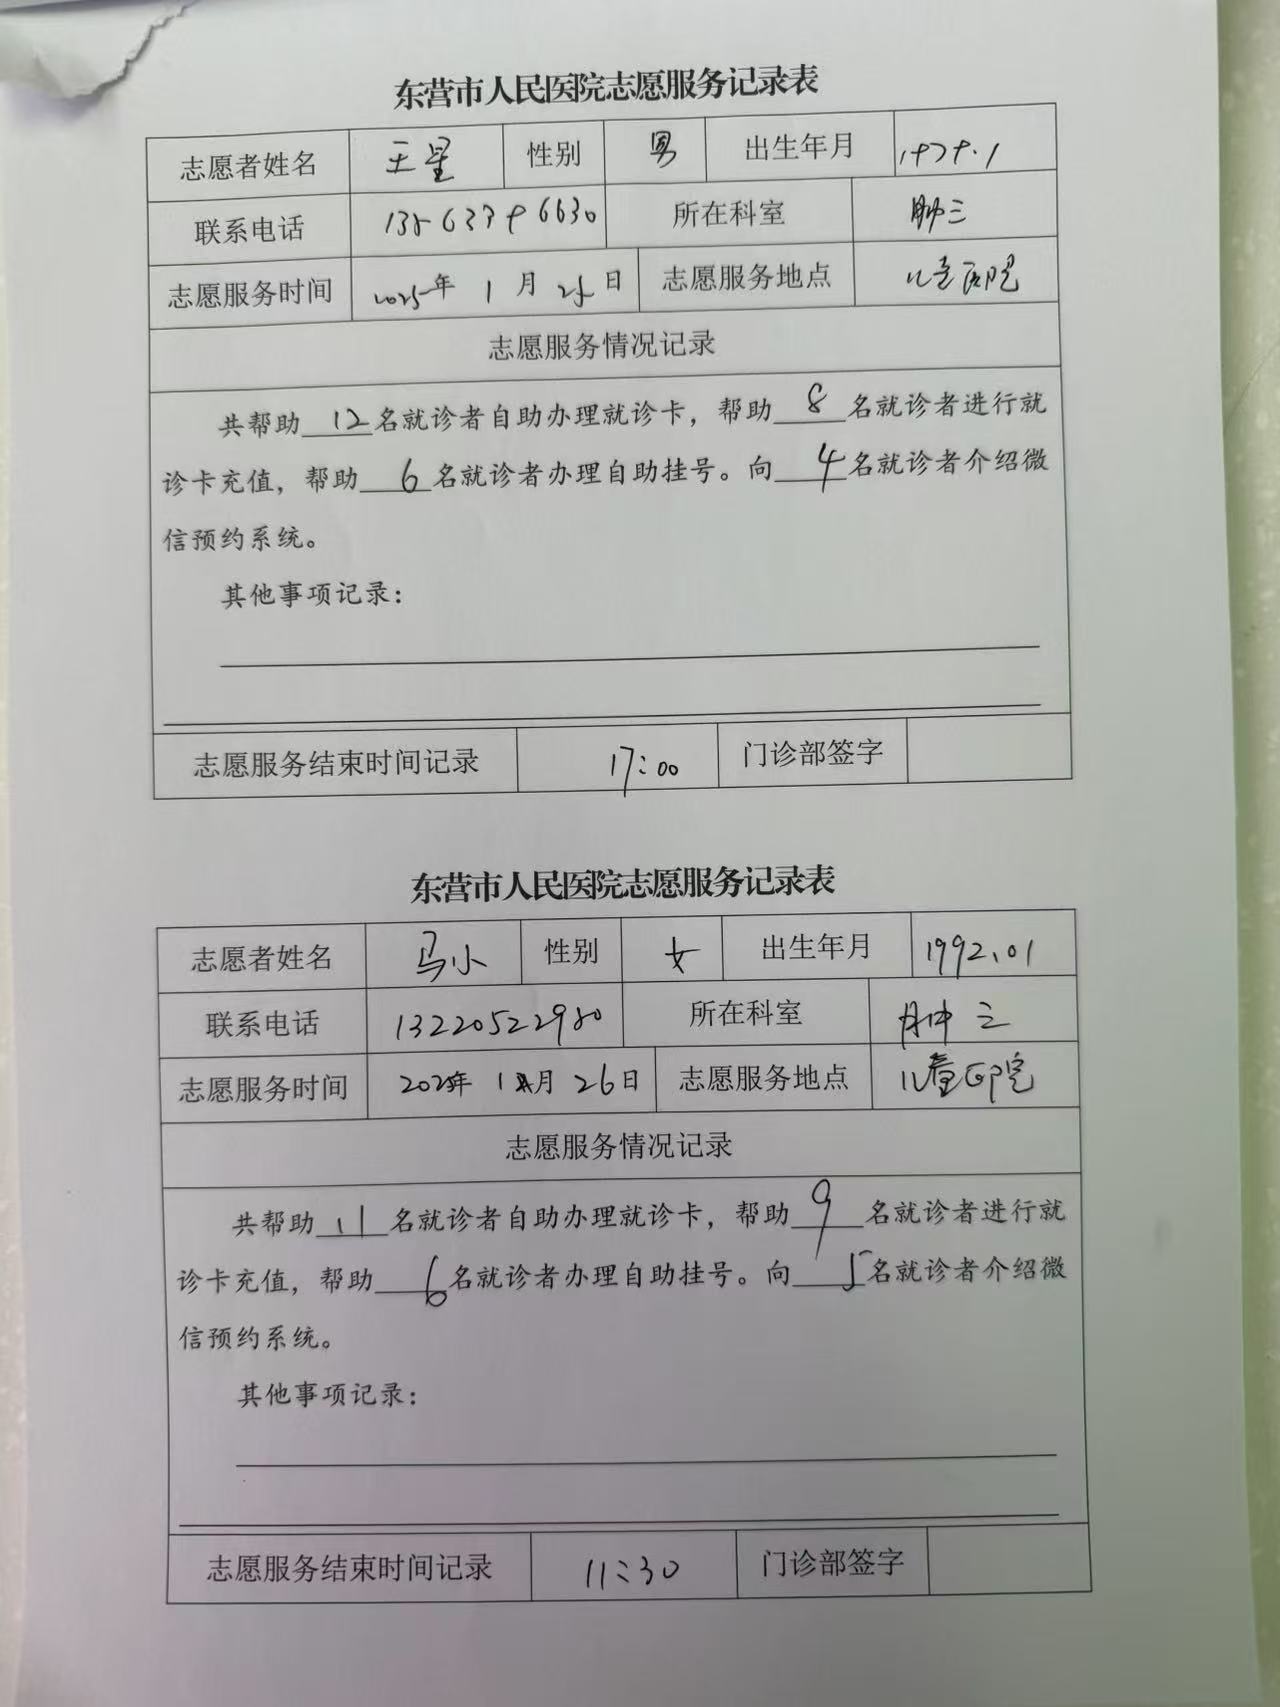 东营市人民医院志愿服务记录表
志愿者姓名 王星 性别 男 出生年月 1979.1
联系电话 所在科室 肿三
志愿服务时间 2025年 1 月 25 日 志愿服务地点 儿童医院
志愿服务情况记录
共帮助 12 名就诊者自助办理就诊卡，帮助 8 名就诊者进行就
诊卡充值，帮助 6 名就诊者办理自助挂号。向 4 名就诊者介绍微
信预约系统。
其他事项记录：
志愿服务结束时间记录 17:00 门诊部签字
东营市人民医院志愿服务记录表
志愿者姓名 马小 性别 女 出生年月 1992.01
联系电话 13220522980 所在科室 肿三
志愿服务时间 2025年 1 月 26 日 志愿服务地点 儿童医院
志愿服务情况记录
共帮助 11 名就诊者自助办理就诊卡，帮助 9 名就诊者进行就
诊卡充值，帮助 6 名就诊者办理自助挂号。向 5 名就诊者介绍微
信预约系统。
其他事项记录：
志愿服务结束时间记录 11:30 门诊部签字